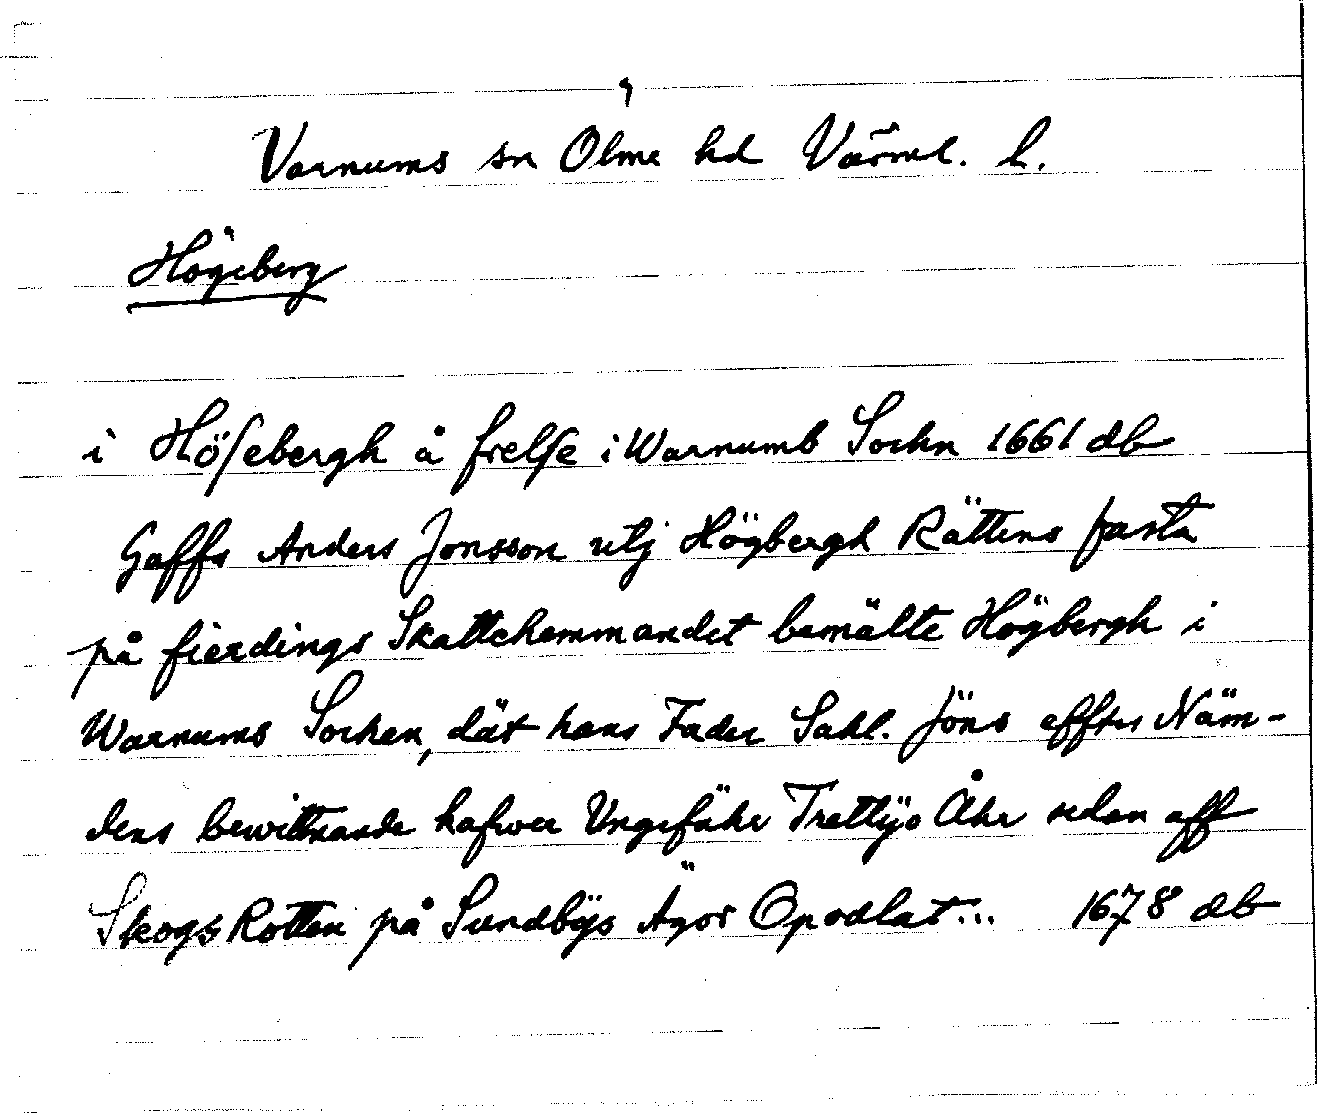 9
Varnums sn Olme hd Värml. l.
Högeberg
i Höſebergh å frelſe i Warnumb Sochn 1661 db
Gaffs Anders Jonsson utj Högbergh Rättens fasta
på fierdings Skattehemmandet bemälte Högbergh i
Warnums Sochen, dät hans Fader Sahl. Jöns effter Näm-
dens bewittnande hafwer Ungefähr Trettÿo Åhr sedan aff
Skogs Rotten på Sundbÿs Ägor Opodlat... 1678 db